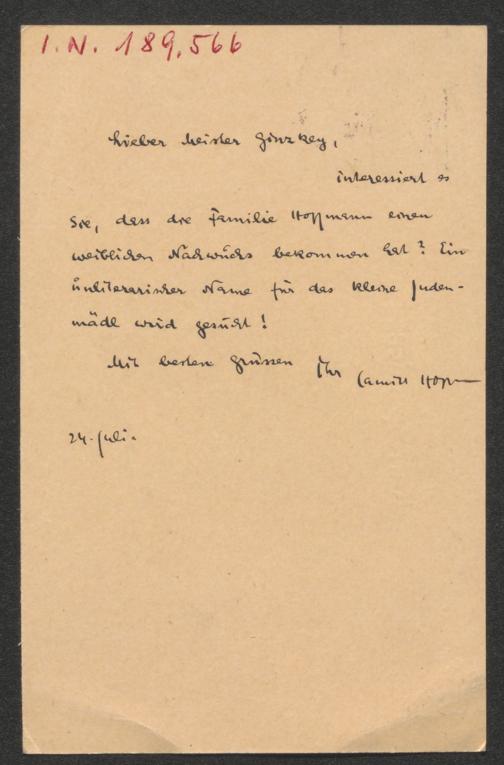 I.N. 189.566
Lieber Meister Ginzkey,
interessiert es
Sie, dass die Familie Hoffmann einen
weiblichen Nachwuchs bekommen hat? Ein
unliterarischer Name für das kleine Juden-
mädl wird gesucht!
Mit besten Grüssen Ihr Camill Hoffmann
24. Juli.